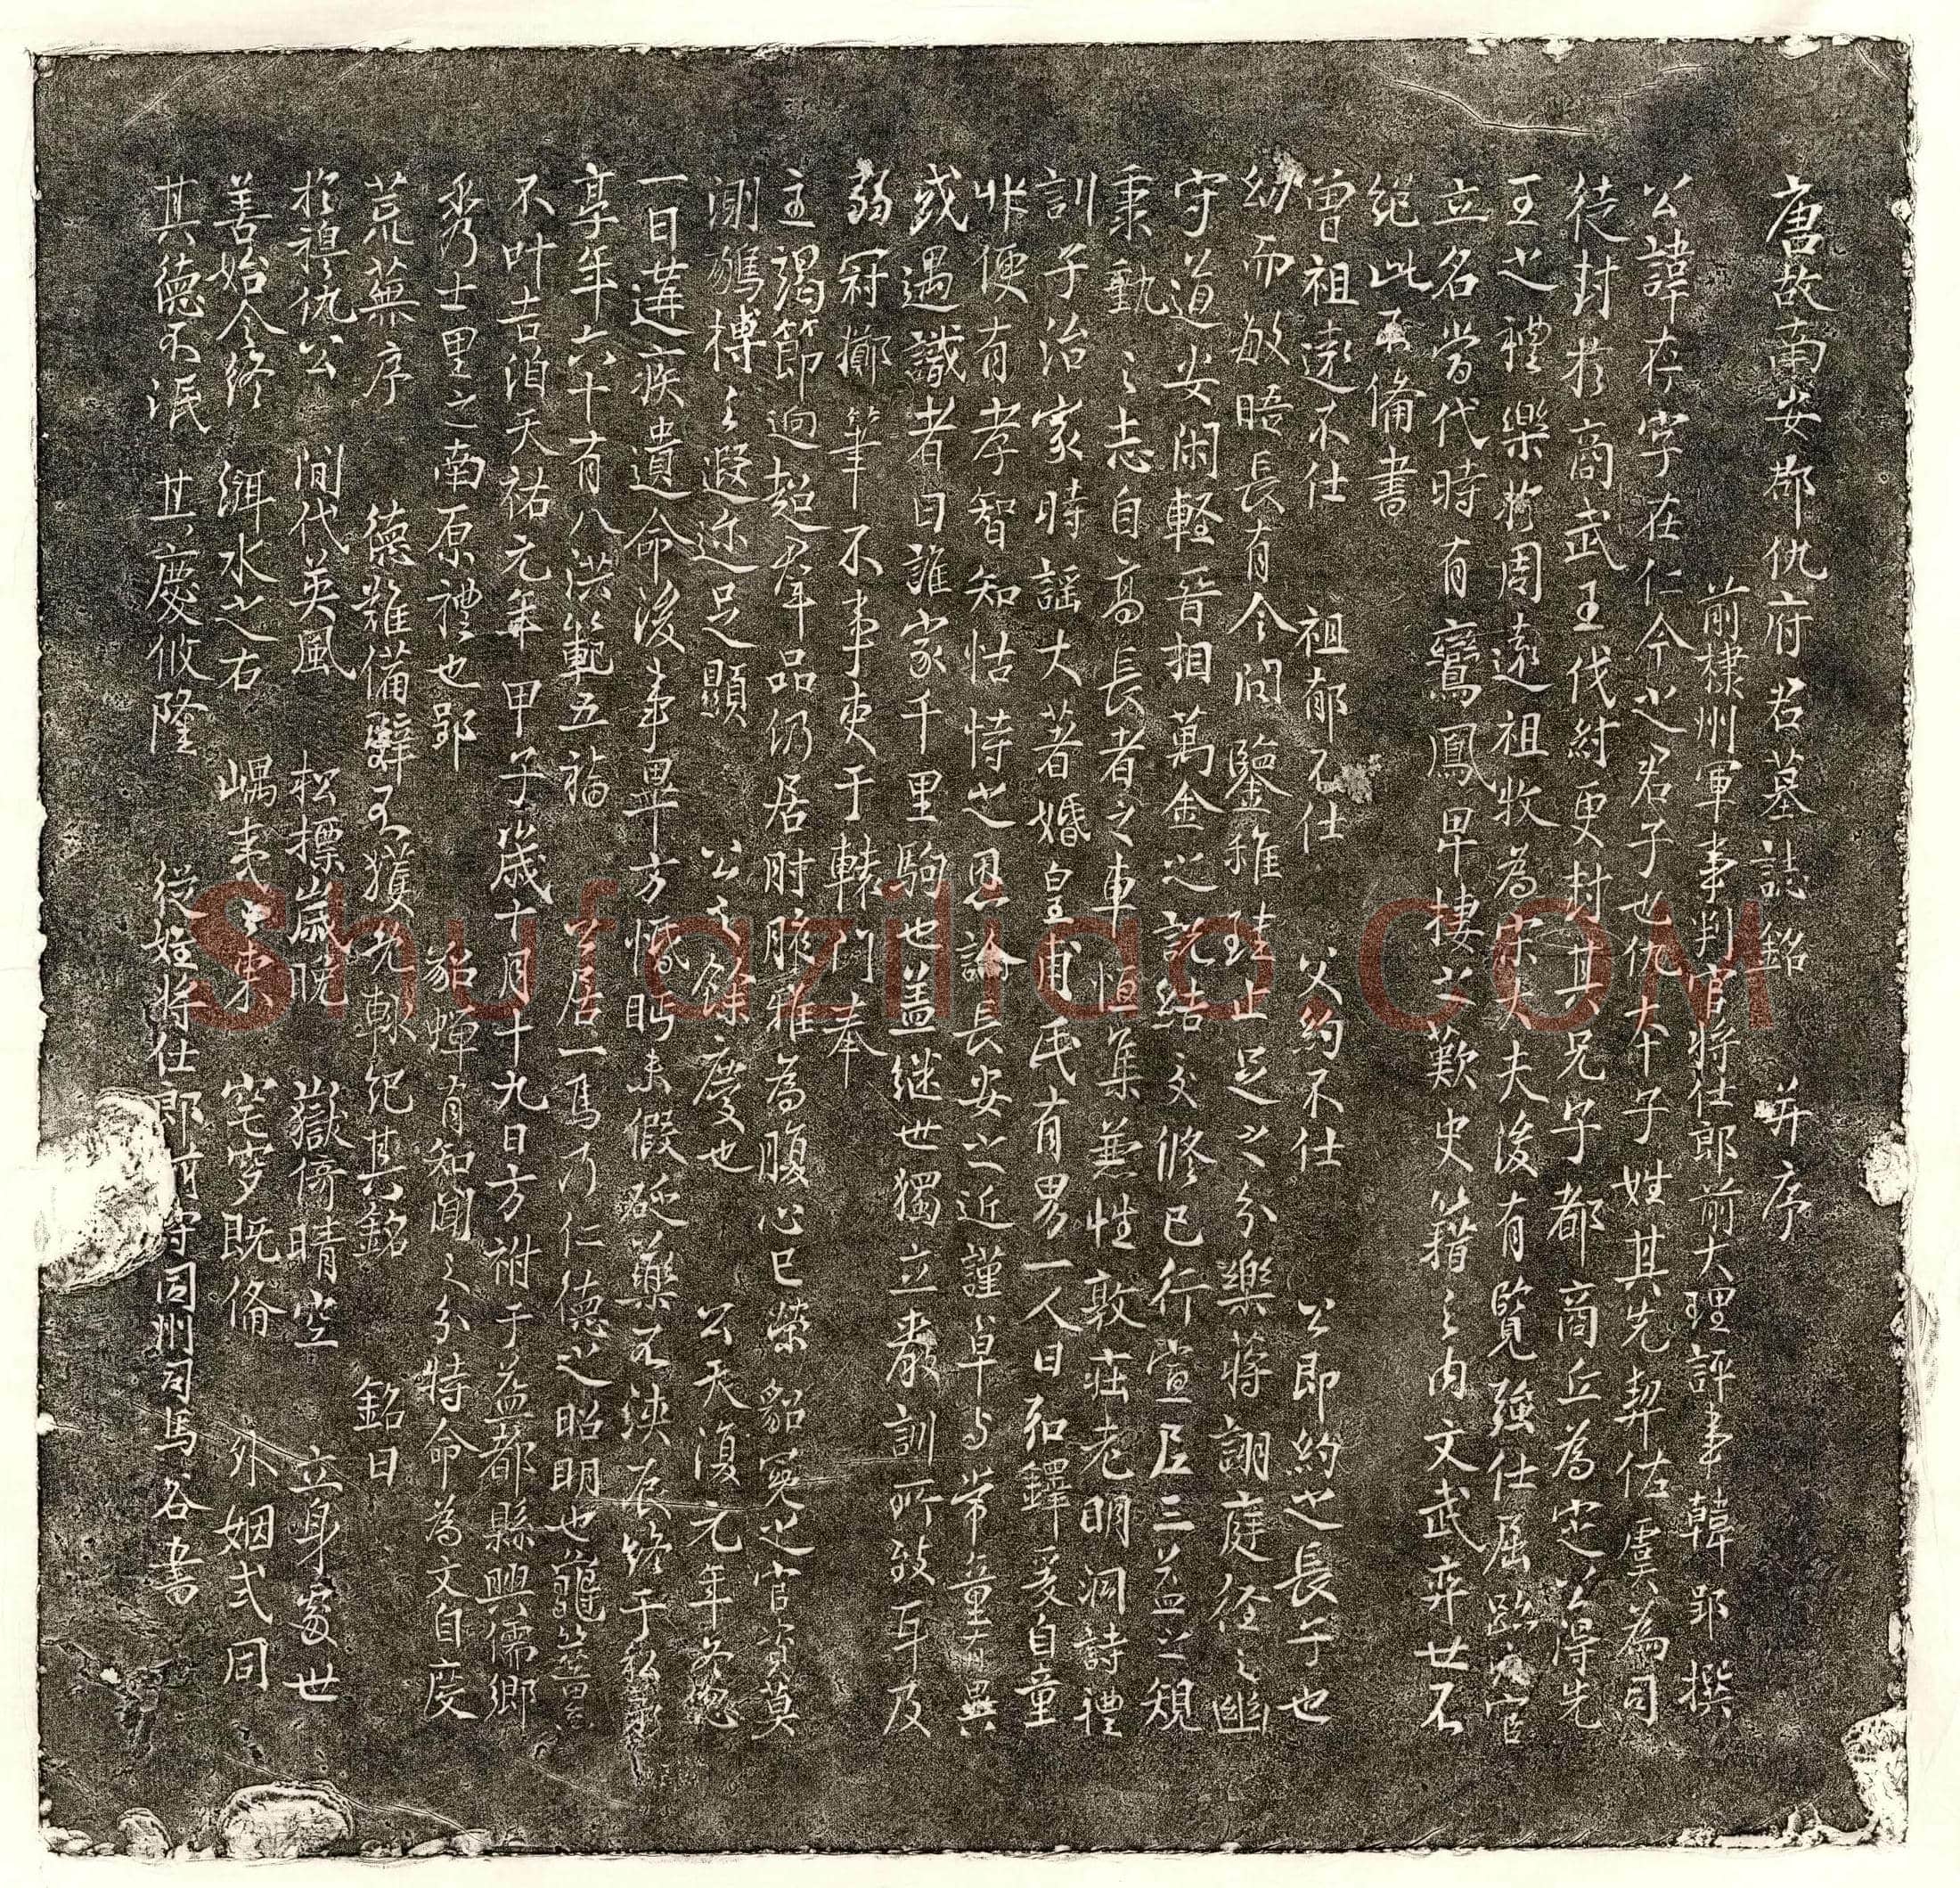 唐故南安郡仇府君墓誌銘 并序
前棣州軍事判官將仕郎前大理評事韓郢 撰
公諱存字在仁今之君子也仇本子姓其先契佐虞為司
徒封於商武王伐紂更封其兄子于都商丘為宋公得先
王之禮樂於周遠祖牧為宋大夫後有覽強仕屈跡官
立名當代時有鸞鳳卑棲之歎史籍之內文武弈世不
絕此不備書
曾祖遠不仕 祖郁不仕 父約不仕 公即約之長子也
幼而敏晤長有令問鑒雅珪止足之分樂蔣詡庭徑之幽
守道安閑輕晉相萬金之說結交修已行宣尼三益之規
秉勤之志自高長者之車恒集兼性敦莊老明洞詩禮
訓子治家時謠大著婚皇甫氏有男一人曰知鐸爰自童
丱便有孝智知怙恃之恩諭長安之近謹草与常童有異
或遇識者曰誰家千里駒也盖繼世獨立嚴訓所致耳及
弱冠擲筆不事事于轅門奉
主竭節迥超群品仍居肘腋雅為腹心已榮貂冕之官資莫
測鵷摶之遐迩足顯 公之餘慶也 公天復元年忽
一日遘疾遺命後事畢方慼眄未假砭藥不浹辰終于私第
享年六十有八洪範五福 公居一焉乃仁德之昭明也龜筮留
不叶吉洎天祐元年甲子歲十月十九日方祔于益都縣興儒鄉
秀士里之南原禮也郢 貂蟬有知聞之分特命為文自度
荒蕪序 德雖備辭不獲免輒紀其銘 銘曰
於穆仇公 間代英風 松摽歲晚 嶽倚晴空 立身處世
善始令終 渳水之右 嵎夷之東 窀穸既俻 外姻式同
其德不泯 其慶攸隆 從姪將仕郎前守同州司馬谷書
Shufaziliao.COM